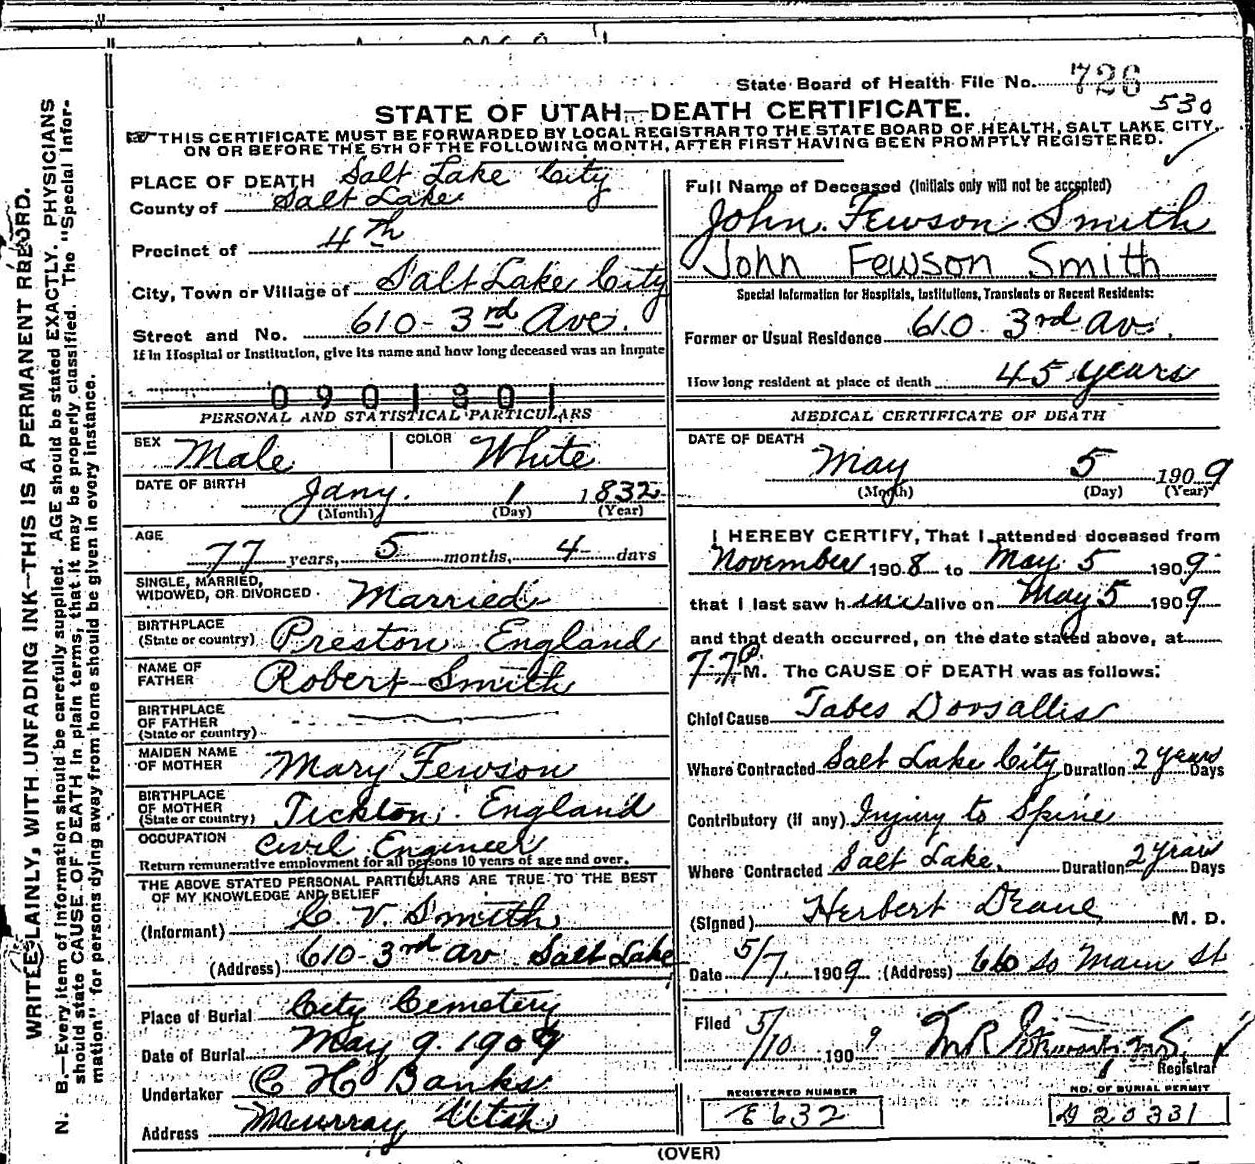 State Board of Health File No. 726
530
STATE OF UTAH—DEATH CERTIFICATE.
THIS CERTIFICATE MUST BE FORWARDED BY LOCAL REGISTRAR TO THE STATE BOARD OF HEALTH, SALT LAKE CITY,
ON OR BEFORE THE 5TH OF THE FOLLOWING MONTH, AFTER FIRST HAVING BEEN PROMPTLY REGISTERED.
WRITE PLAINLY, WITH UNFADING INK—THIS IS A PERMANENT RECORD.
N. B.—Every item of information should be carefully supplied. AGE should be stated EXACTLY. PHYSICIANS
should state CAUSE OF DEATH in plain terms, that it may be properly classified. The "Special Infor-
mation" for persons dying away from home should be given in every instance.
PLACE OF DEATH Salt Lake City
County of Salt Lake
Precinct of 4th
City, Town or Village of Salt Lake City
Street and No. 610 - 3rd Ave.
If in Hospital or Institution, give its name and how long deceased was an Inmate
0901801
PERSONAL AND STATISTICAL PARTICULARS
SEX Male COLOR White
DATE OF BIRTH Jany. 1 1832
(Month) (Day) (Year)
AGE 77 years, 5 months, 4 days
SINGLE, MARRIED,
WIDOWED, OR DIVORCED Married
BIRTHPLACE
(State or country) Preston England
NAME OF
FATHER Robert Smith
BIRTHPLACE
OF FATHER
(State or country)
MAIDEN NAME
OF MOTHER Mary Fewson
BIRTHPLACE
OF MOTHER
(State or country) Tickton. England
OCCUPATION Civil Engineer
Return remunerative employment for all persons 10 years of age and over.
THE ABOVE STATED PERSONAL PARTICULARS ARE TRUE TO THE BEST
OF MY KNOWLEDGE AND BELIEF
(Informant) C. V. Smith
(Address) 610 - 3rd av Salt Lake
Place of Burial City Cemetery
Date of Burial May 9. 1909
Undertaker C H Banks
Address Murray Utah
Full Name of Deceased (Initials only will not be accepted)
John Fewson Smith
John Fewson Smith
Special Information for Hospitals, Institutions, Transients or Recent Residents:
Former or Usual Residence 610 3rd Av.
How long resident at place of death 45 years
MEDICAL CERTIFICATE OF DEATH
DATE OF DEATH
May 5 1909
(Month) (Day) (Year)
I HEREBY CERTIFY, That I attended deceased from
November 1908 to May 5 1909.
that I last saw him alive on May 5 1909
and that death occurred, on the date stated above, at
P M. The CAUSE OF DEATH was as follows:
Chief Cause Tabes Dorsallis
Where Contracted Salt Lake City Duration 2 years Days
Contributory (if any) Injury to Spine
Where Contracted Salt Lake. Duration 2 years Days
(Signed) Herbert Deane M. D.
Date 5/7 1909 (Address) 66 So Main St
Filed 5/10 1909
Registrar
REGISTERED NUMBER
E632
NO. OF BURIAL PERMIT
D 20331
(OVER)